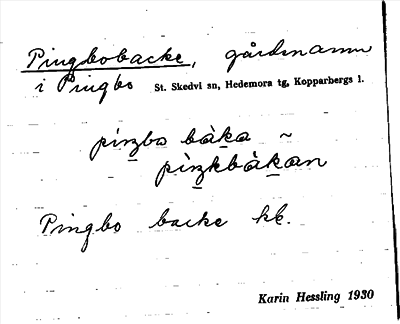 Pingbobacke, gårdsnamn
i Pingbo St. Skedvi sn, Hedemora tg, Kopparbergs l.
pìŋbo bàka ~
pìŋkbàkan
Pingbo backe kk.
Karin Hessling 1930